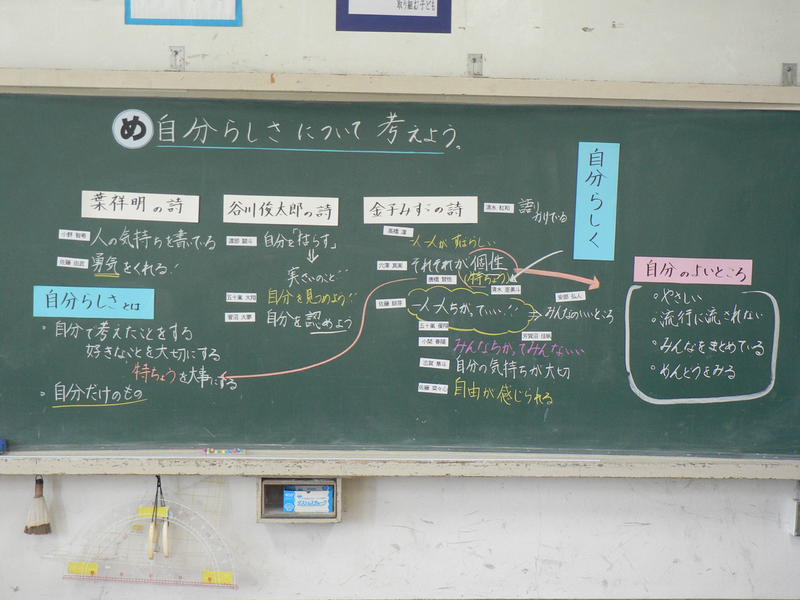 取り組む子ども
め 自分らしさについて考えよう。
自分らしく
葉祥明の詩
人の気持ちを書いてる
佐藤 由武
勇気をくれる!
自分らしさとは
・自分で考えたことをする
好きなことを大切にする
特ちょうを大事にする
・自分だけのもの
谷川俊太郎の詩
自分を「はらす」
⇓
実さいのこと
五十嵐 大翔
自分を見つめよう!
菅沼 大夢
自分を認めよう
金子みすゞの詩
清水 虹和
語りかけている
高橋 凜
一人一人がすばらしい
穴澤 真実
それぞれが個性
(特ちょう)
一人一人ちがって、いい!!
⇒みんなのいいところ
安部 弘人
みんなちがってみんないい
志賀 雅斗
自分の気持ちが大切
佐藤 菜々心
自由が感じられる
自分のよいところ
・やさしい
・流行に流されない
・みんなをまとめている
・めんどうをみる